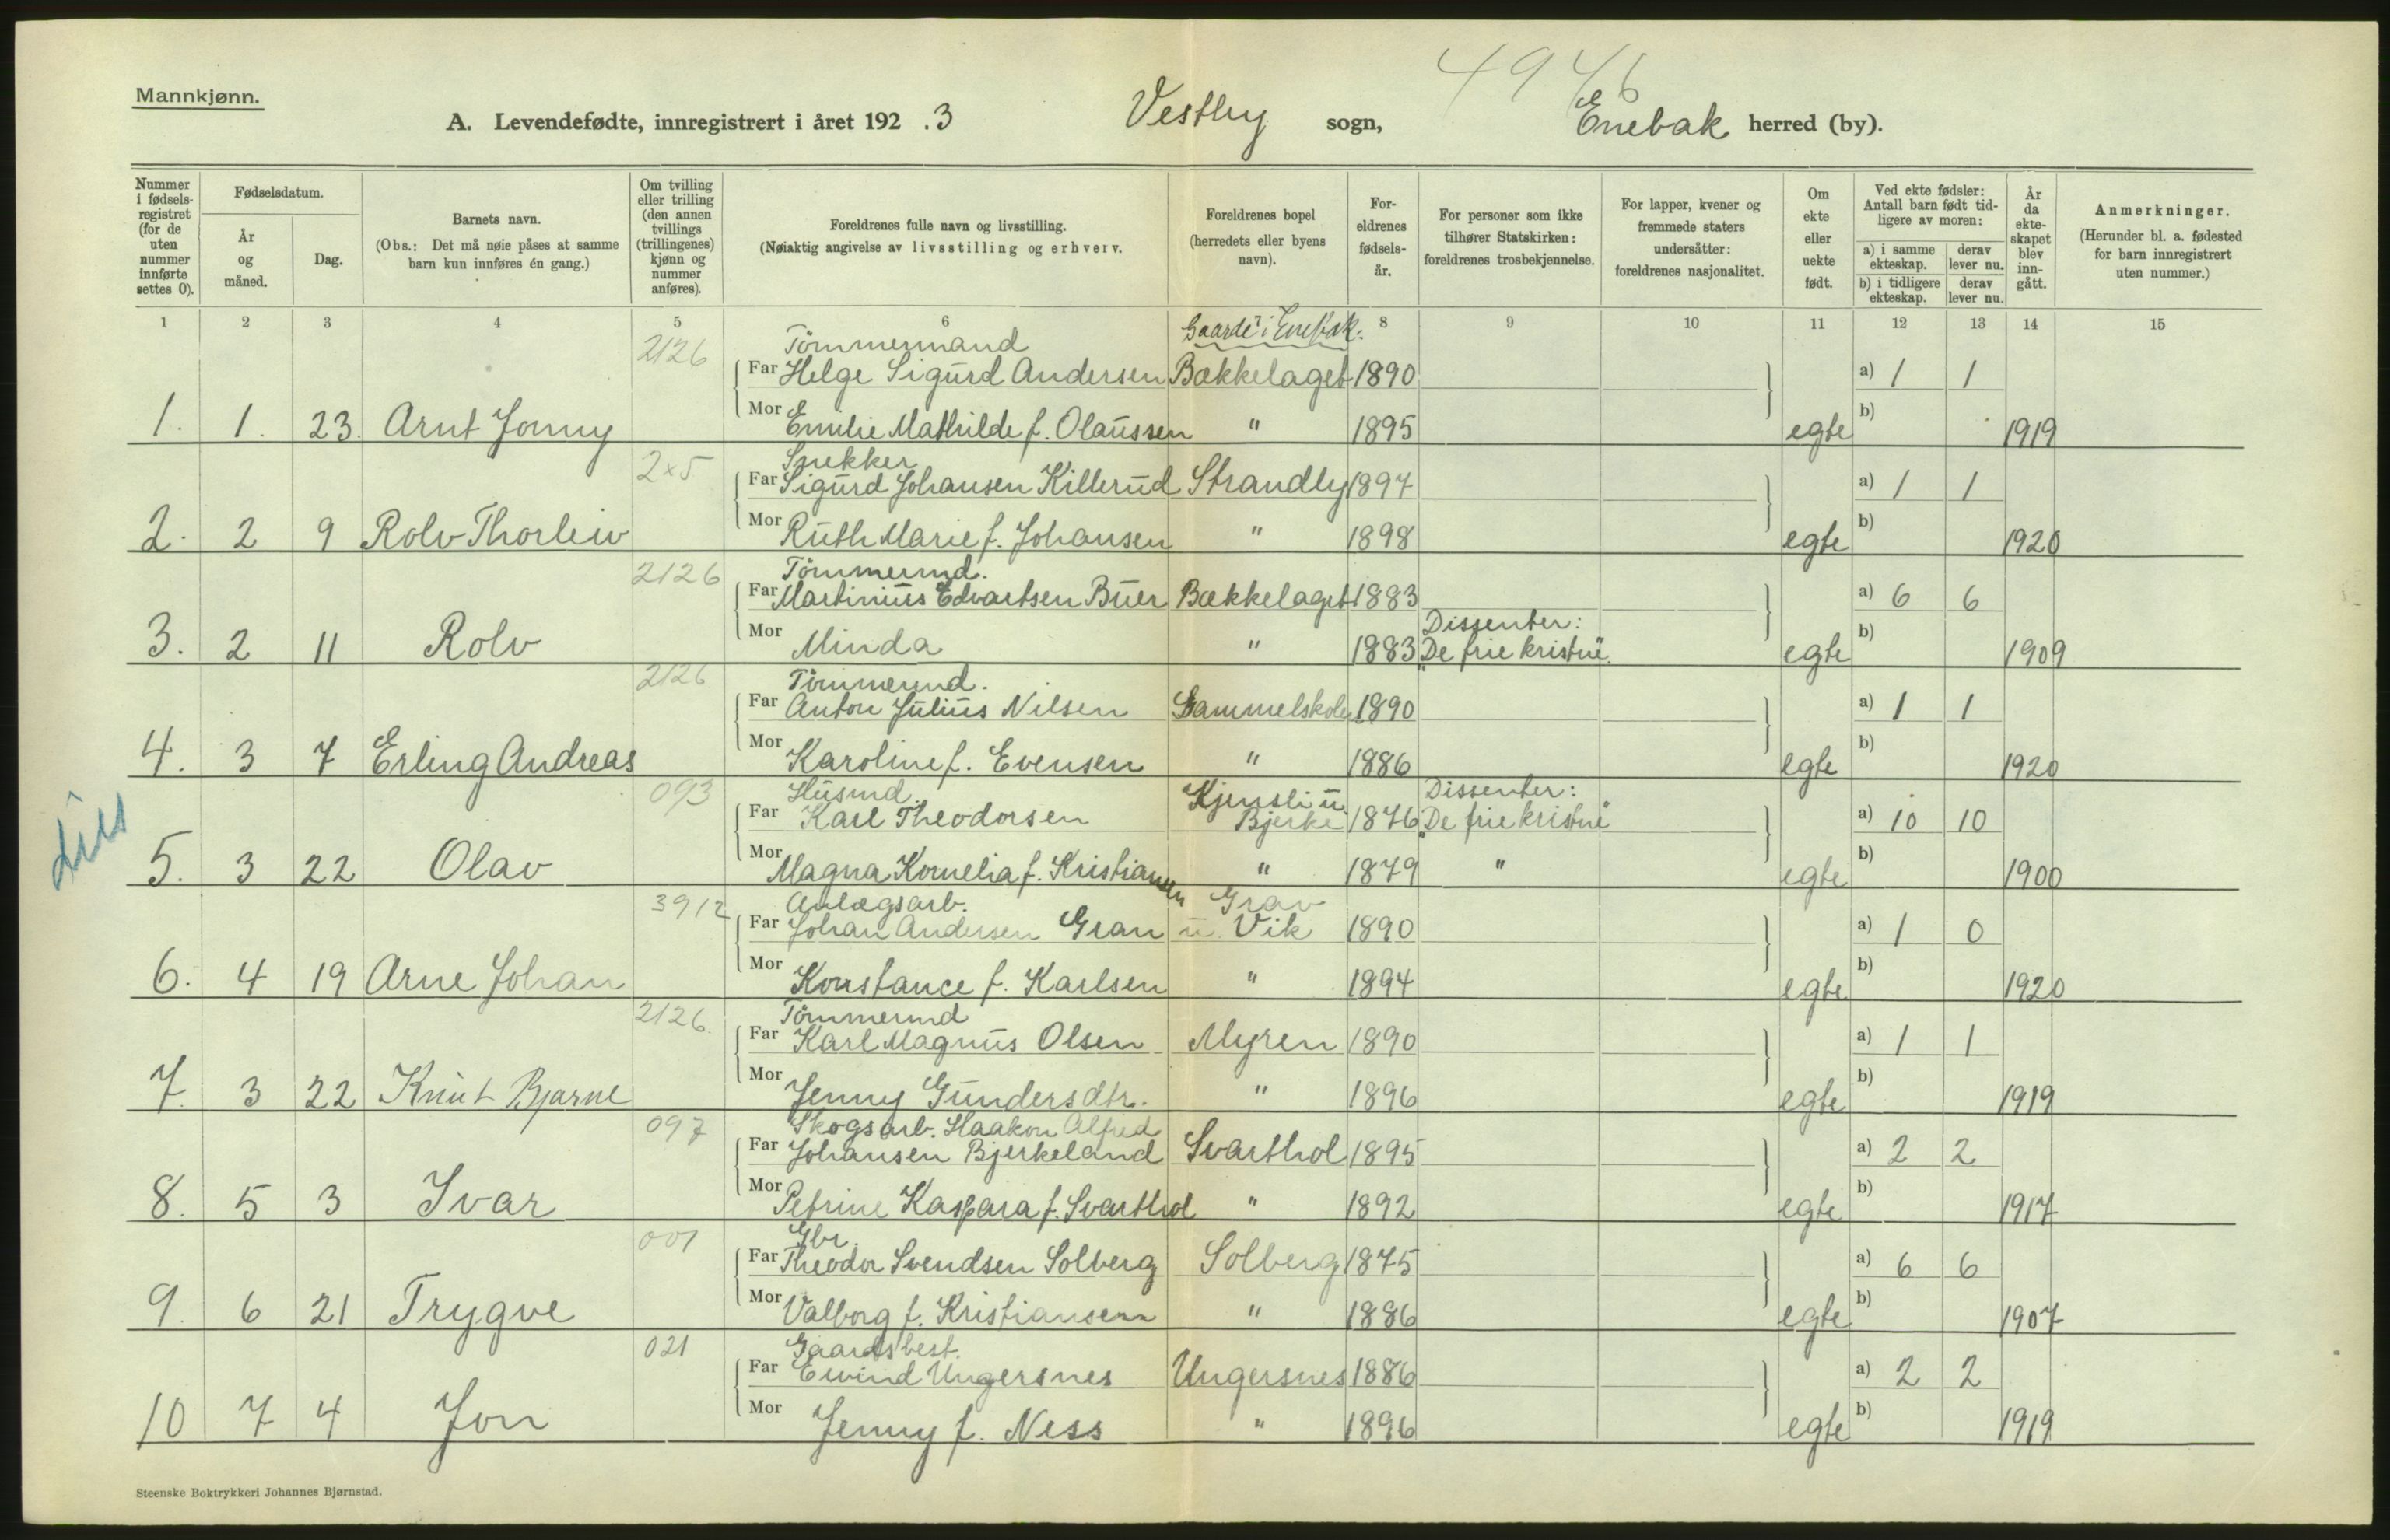 Mannkjønn.
4946
A. Levendefødte, innregistrert i året 192.3 Vestby sogn, Enebak herred (by).
Nummer i fødsels-registret (for de uten nummer innførte settes 0). Fødselsdatum. År og måned. Dag. Barnets navn. (Obs.: Det må nøie påses at samme barn kun innføres én gang.) Om tvilling eller trilling (den annen tvillings (trillingenes) kjønn og nummer anføres). Foreldrenes fulle navn og livsstilling. (Nøiaktig angivelse av livsstilling og erhverv. Foreldrenes bopel (herredets eller byens navn). For-eldrenes fødsels-år. For personer som ikke tilhører Statskirken: foreldrenes trosbekjennelse. For lapper, kvener og fremmede staters undersåtter: foreldrenes nasjonalitet. Om ekte eller uekte født. Ved ekte fødsler: Antall barn født tid-ligere av moren: a) i samme ekteskap. derav lever nu. b) i tidligere ekteskap. derav lever nu. År da ekte-skapet blev inn-gått. Anmerkninger. (Herunder bl. a. fødested for barn innregistrert uten nummer.)
1 2 3 4 5 6 8 9 10 11 12 13 14 15
2126 Tömmermand Gaarde i Enebak.
Far Helge Sigurd Andersen Bækkelaget 1890 a) 1 1
1. 1. 23. Arnt Jonny Mor Emilie Mathilde f. Olaussen " 1895 egte b) 1919
2x5 Snekker
Far Sigurd Johansen Killerud Strandby 1897 a) 1 1
2. 2 9 Rolv Thorleiv Mor Ruth Marie f. Johansen " 1898 egte b) 1920
2126 Tömmermd.
Far Martinius Edvartsen Buer Bækkelaget 1883 a) 6 6
Dissenter:
3. 2 11 Rolv Mor Minda " 1883 "De frie kristne". egte b) 1909
2126 Tömmermd.
Far Anton Julius Nilsen Gammelskole 1890 a) 1 1
4. 3 7 Erling Andreas Mor Karoline f. Evensen " 1886 egte b) 1920
093 Husmd. Kjensli u. Dissenter:
Far Karl Theodorsen Bjerke 1876 "De frie kristne" a) 10 10
5. 3 22 Olav Mor Magna Kornelia f. Kristiansen " 1879 " egte b) 1900
3912 Anlægsarb. Grav
Far Johan Andersen Gran u. Vik 1890 a) 1 0
6. 4 19 Arne Johan Mor Konstance f. Karlsen " 1894 egte b) 1920
2126. Tömmermd
Far Karl Magnus Olsen Myren 1890 a) 1 1
7. 3 22 Knut Bjarne Mor Jenny Gundersdtr. " 1896 egte b) 1919
097 Skogsarb. Haakon Alfred
Far Johansen Bjerkeland Svarthol 1895 a) 2 2
8. 5 3 Ivar Mor Petrine Kaspara f. Svarthol " 1892 egte b) 1917
001 Gbr.
Far Theodor Svendsen Solberg Solberg 1875 a) 6 6
9. 6 21 Trygve Mor Valborg f. Kristiansen " 1886 egte b) 1907
021 Gaardsbest.
Far Eivind Ungersnes Ungersnes 1886 a) 2 2
10 7 4 Jon Mor Jenny f. Ness " 1896 egte b) 1919
Steenske Boktrykkeri Johannes Bjørnstad.